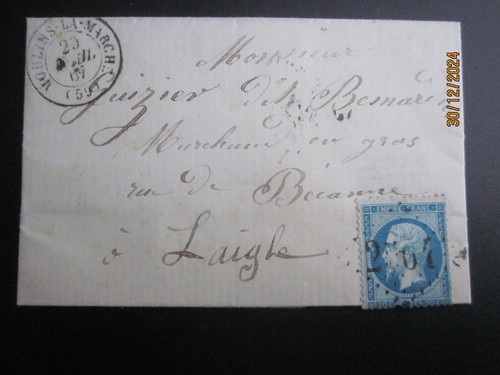 MOULINS-LA-MARCHE
(59)
Monsieur
dit Besnard
Marchand en gros
rue de Bécanne
à Laigle
EMPIRE FRANC
30/12/2024